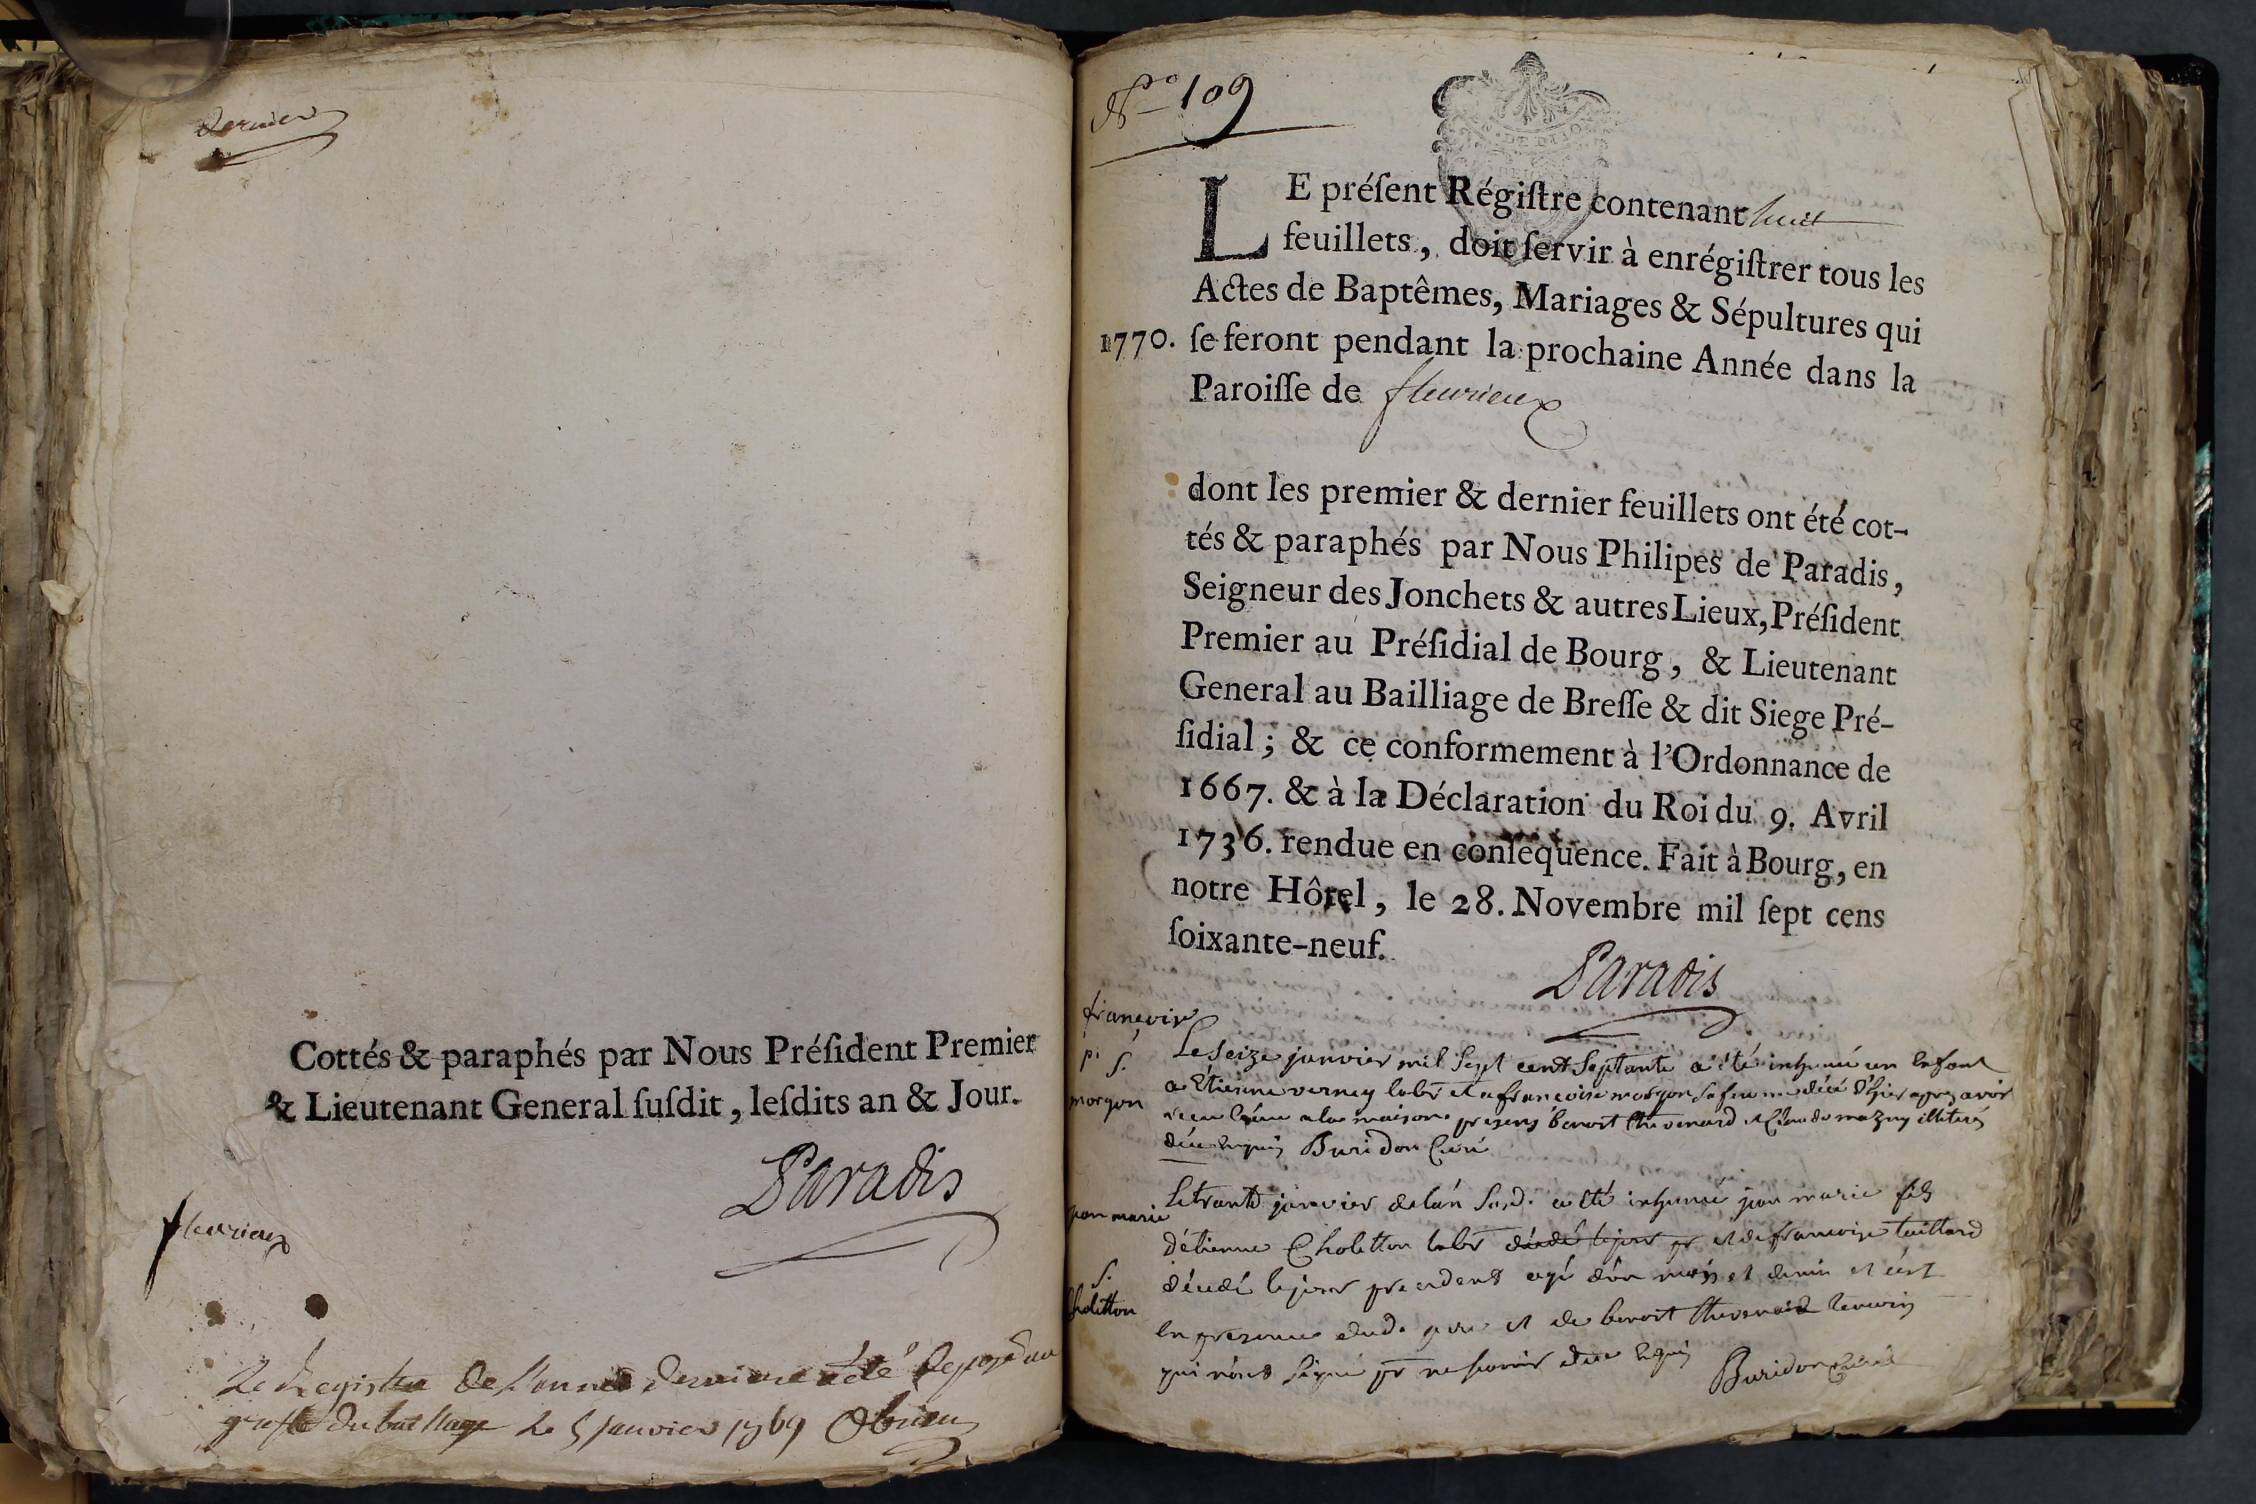 Dernier
Cottés & paraphés par Nous Préſident Premier
& Lieutenant General ſuſdit, leſdits an & Jour.
Paradis
fleurieux
Le Registre de l'année derniere a été deposé au
greffe du bailliage le 5 janvier 1769
N° 109
LE préſent Régiſtre contenant huit
feuillets, doit ſervir à enrégiſtrer tous les
Actes de Baptêmes, Mariages & Sépultures qui
1770. ſe feront pendant la prochaine Année dans la
Paroiſſe de fleurieux
dont les premier & dernier feuillets ont été cot-
tés & paraphés par Nous Philipes de Paradis,
Seigneur des Jonchets & autres Lieux, Préſident
Premier au Préſidial de Bourg, & Lieutenant
General au Bailliage de Breſſe & dit Siege Pré-
ſidial; & ce conformement à l'Ordonnance de
1667. & à la Déclaration du Roi du 9. Avril
1736. rendue en conſéquence. Fait à Bourg, en
notre Hôtel, le 28. Novembre mil ſept cens
ſoixante-neuf.
Paradis
francoise
S.
morgon
Le seize janvier mil sept cent septante a été inhumé un enfant
a Étienne verney labr et a francoise morgon sa femme décé d'hier apres avoir
a la maison presens benoit thevenard et Claude mazuy illiterés
Buridon Curé
jean marie
S.
Cholitton
Le trante janvier de l'an susd. a été inhumé jean marie fils
d'étienne Cholitton labr décédé le jour pr et de francoise tuittard
décédé le jour precedent agé d'un mois et demi et c'est
en presence dud. pere et de benoit thevenard temoins
qui n'ont signé pr ne scavoir de ce requis Buridon Curé